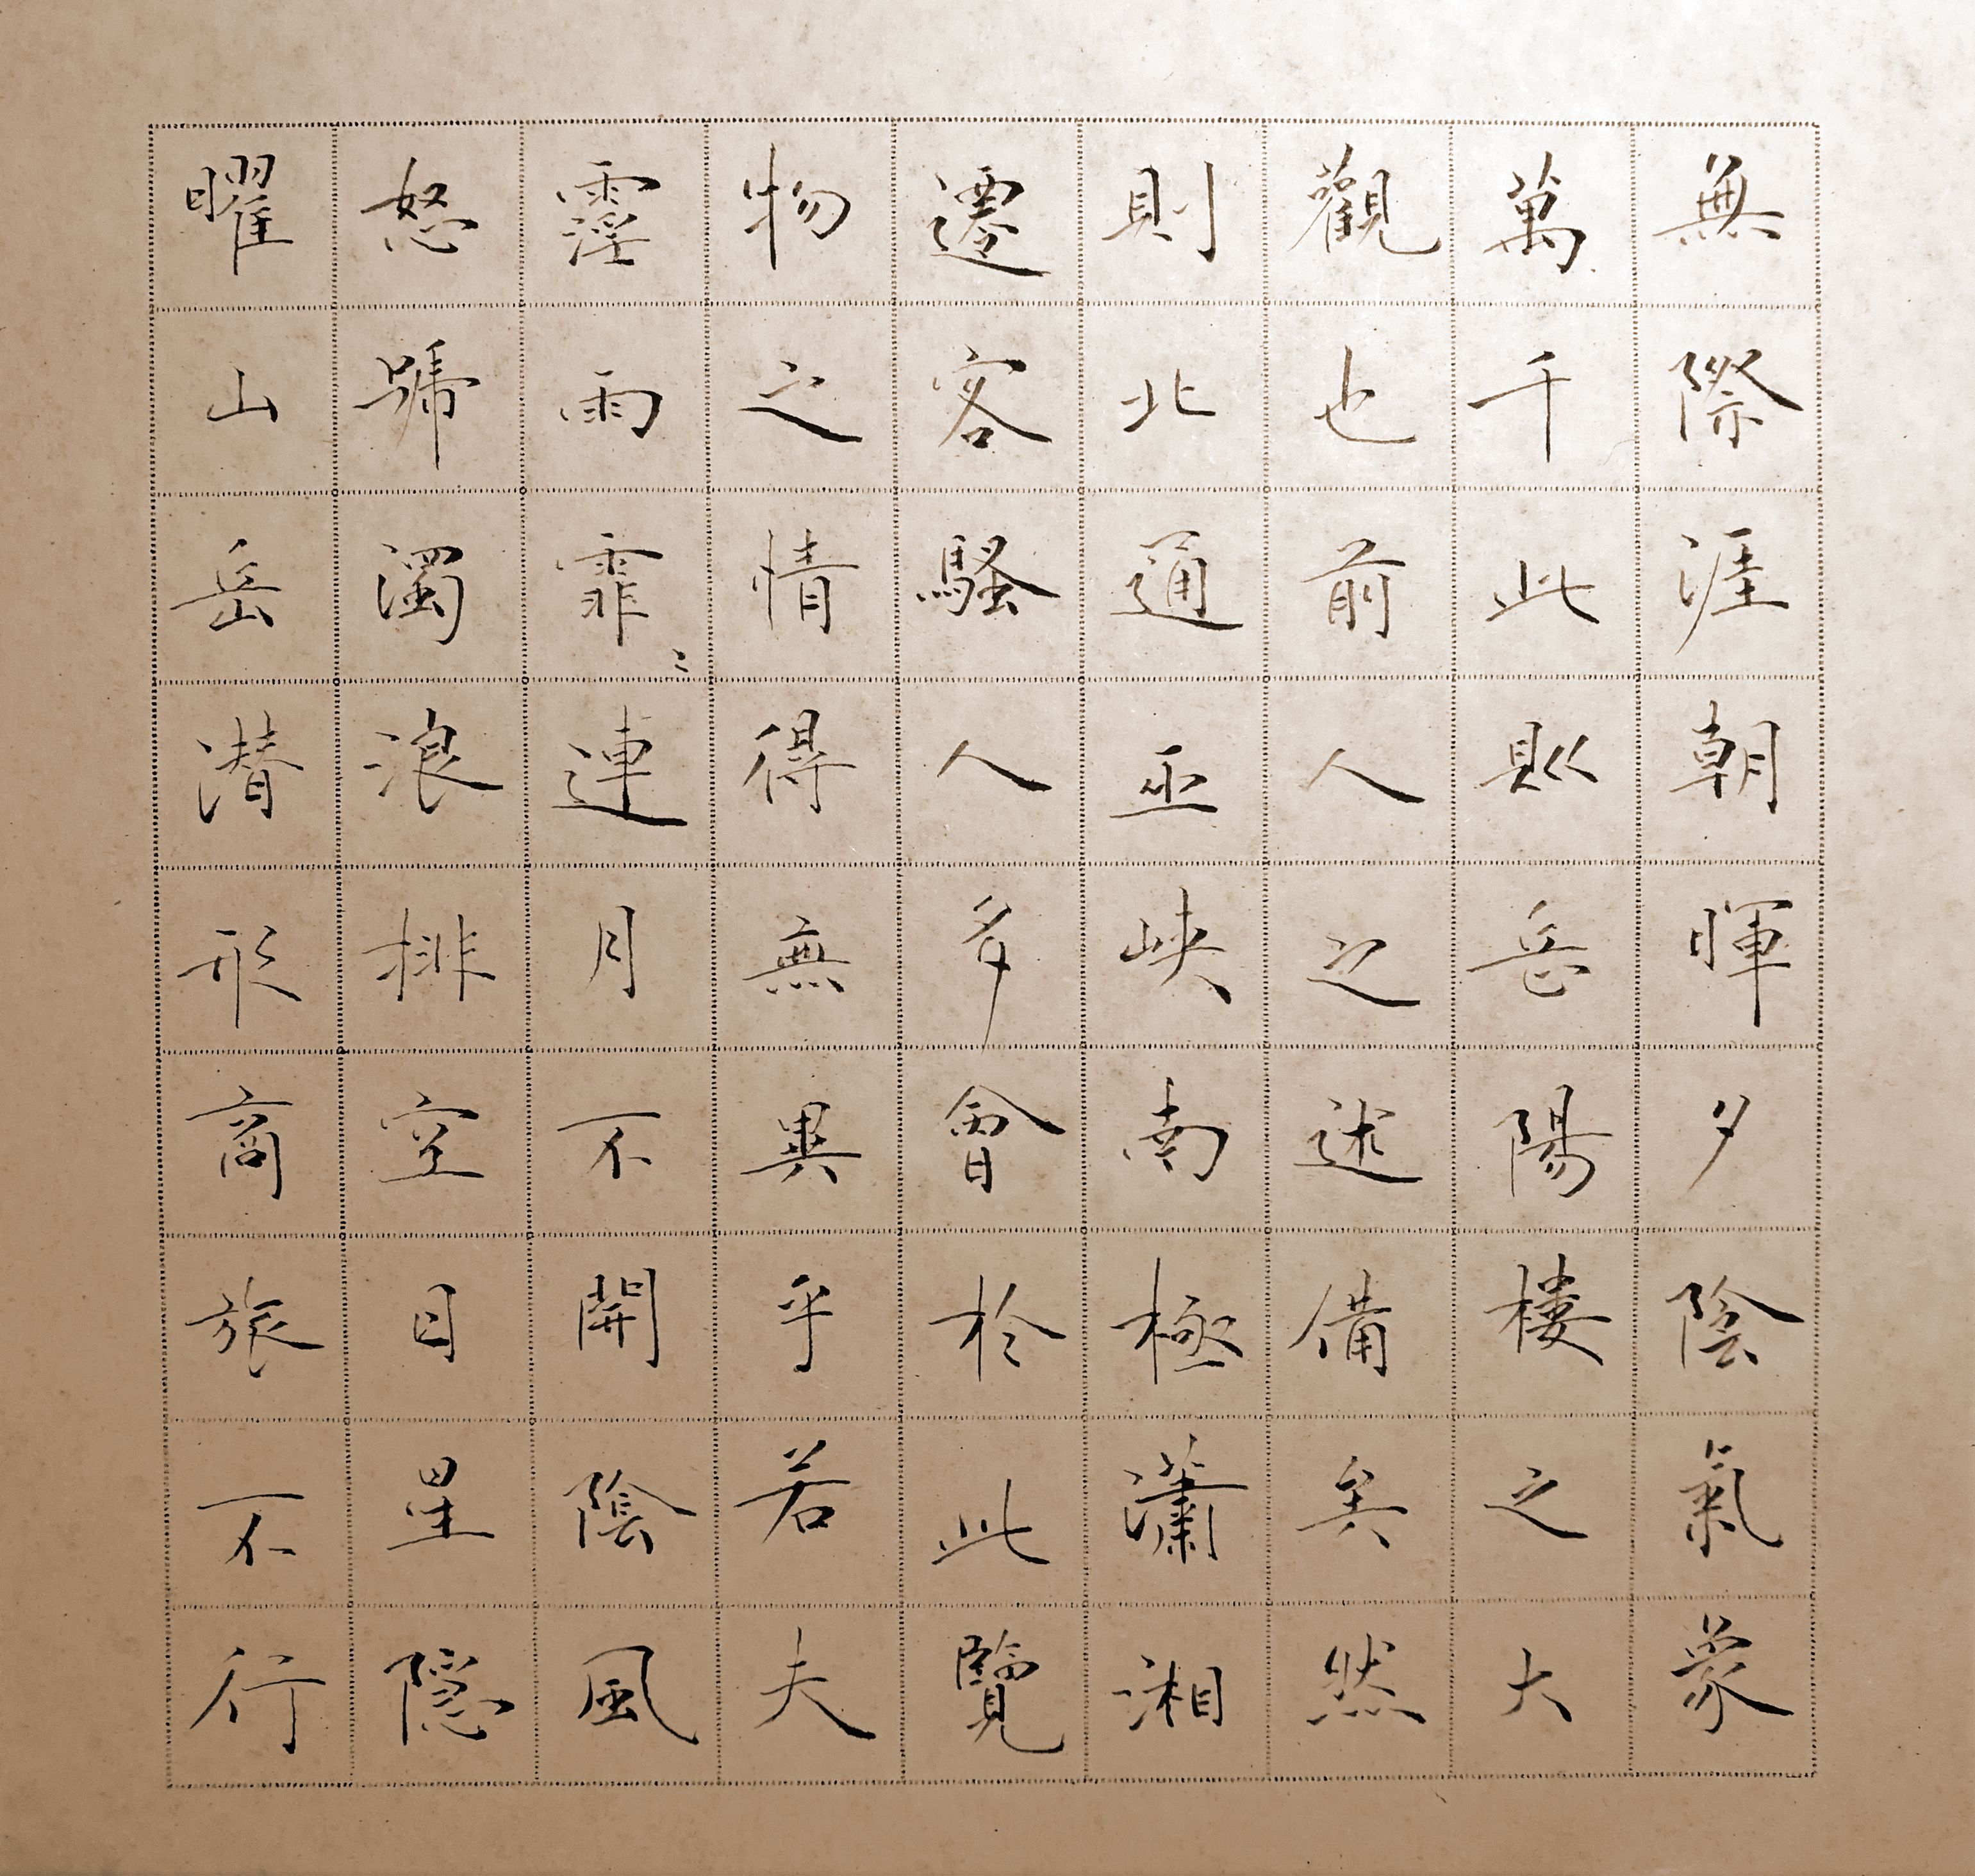 無際涯朝暉夕陰氣象
萬千此則岳陽樓之大
觀也前人之述備矣然
則北通巫峽南極瀟湘
遷客騷人多會於此覽
物之情得無異乎若夫
霪雨霏〻連月不開陰風
怒號濁浪排空日星隱
曜山岳潜形商旅不行